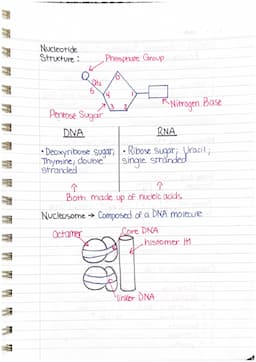 Nucleotide
Structure :
Phosphate Group
O
CH₂
5
4
1
3
2
Nitrogen Base
Pentose Sugar
DNA
RNA
• Deoxyribose sugar;
Thymine; double
stranded
• Ribose sugar; Uracil;
single stranded
Both made up of nucleic acids
Nucleosome → Composed of a DNA molecule
Octamer
Core DNA
histomer H1
linker DNA